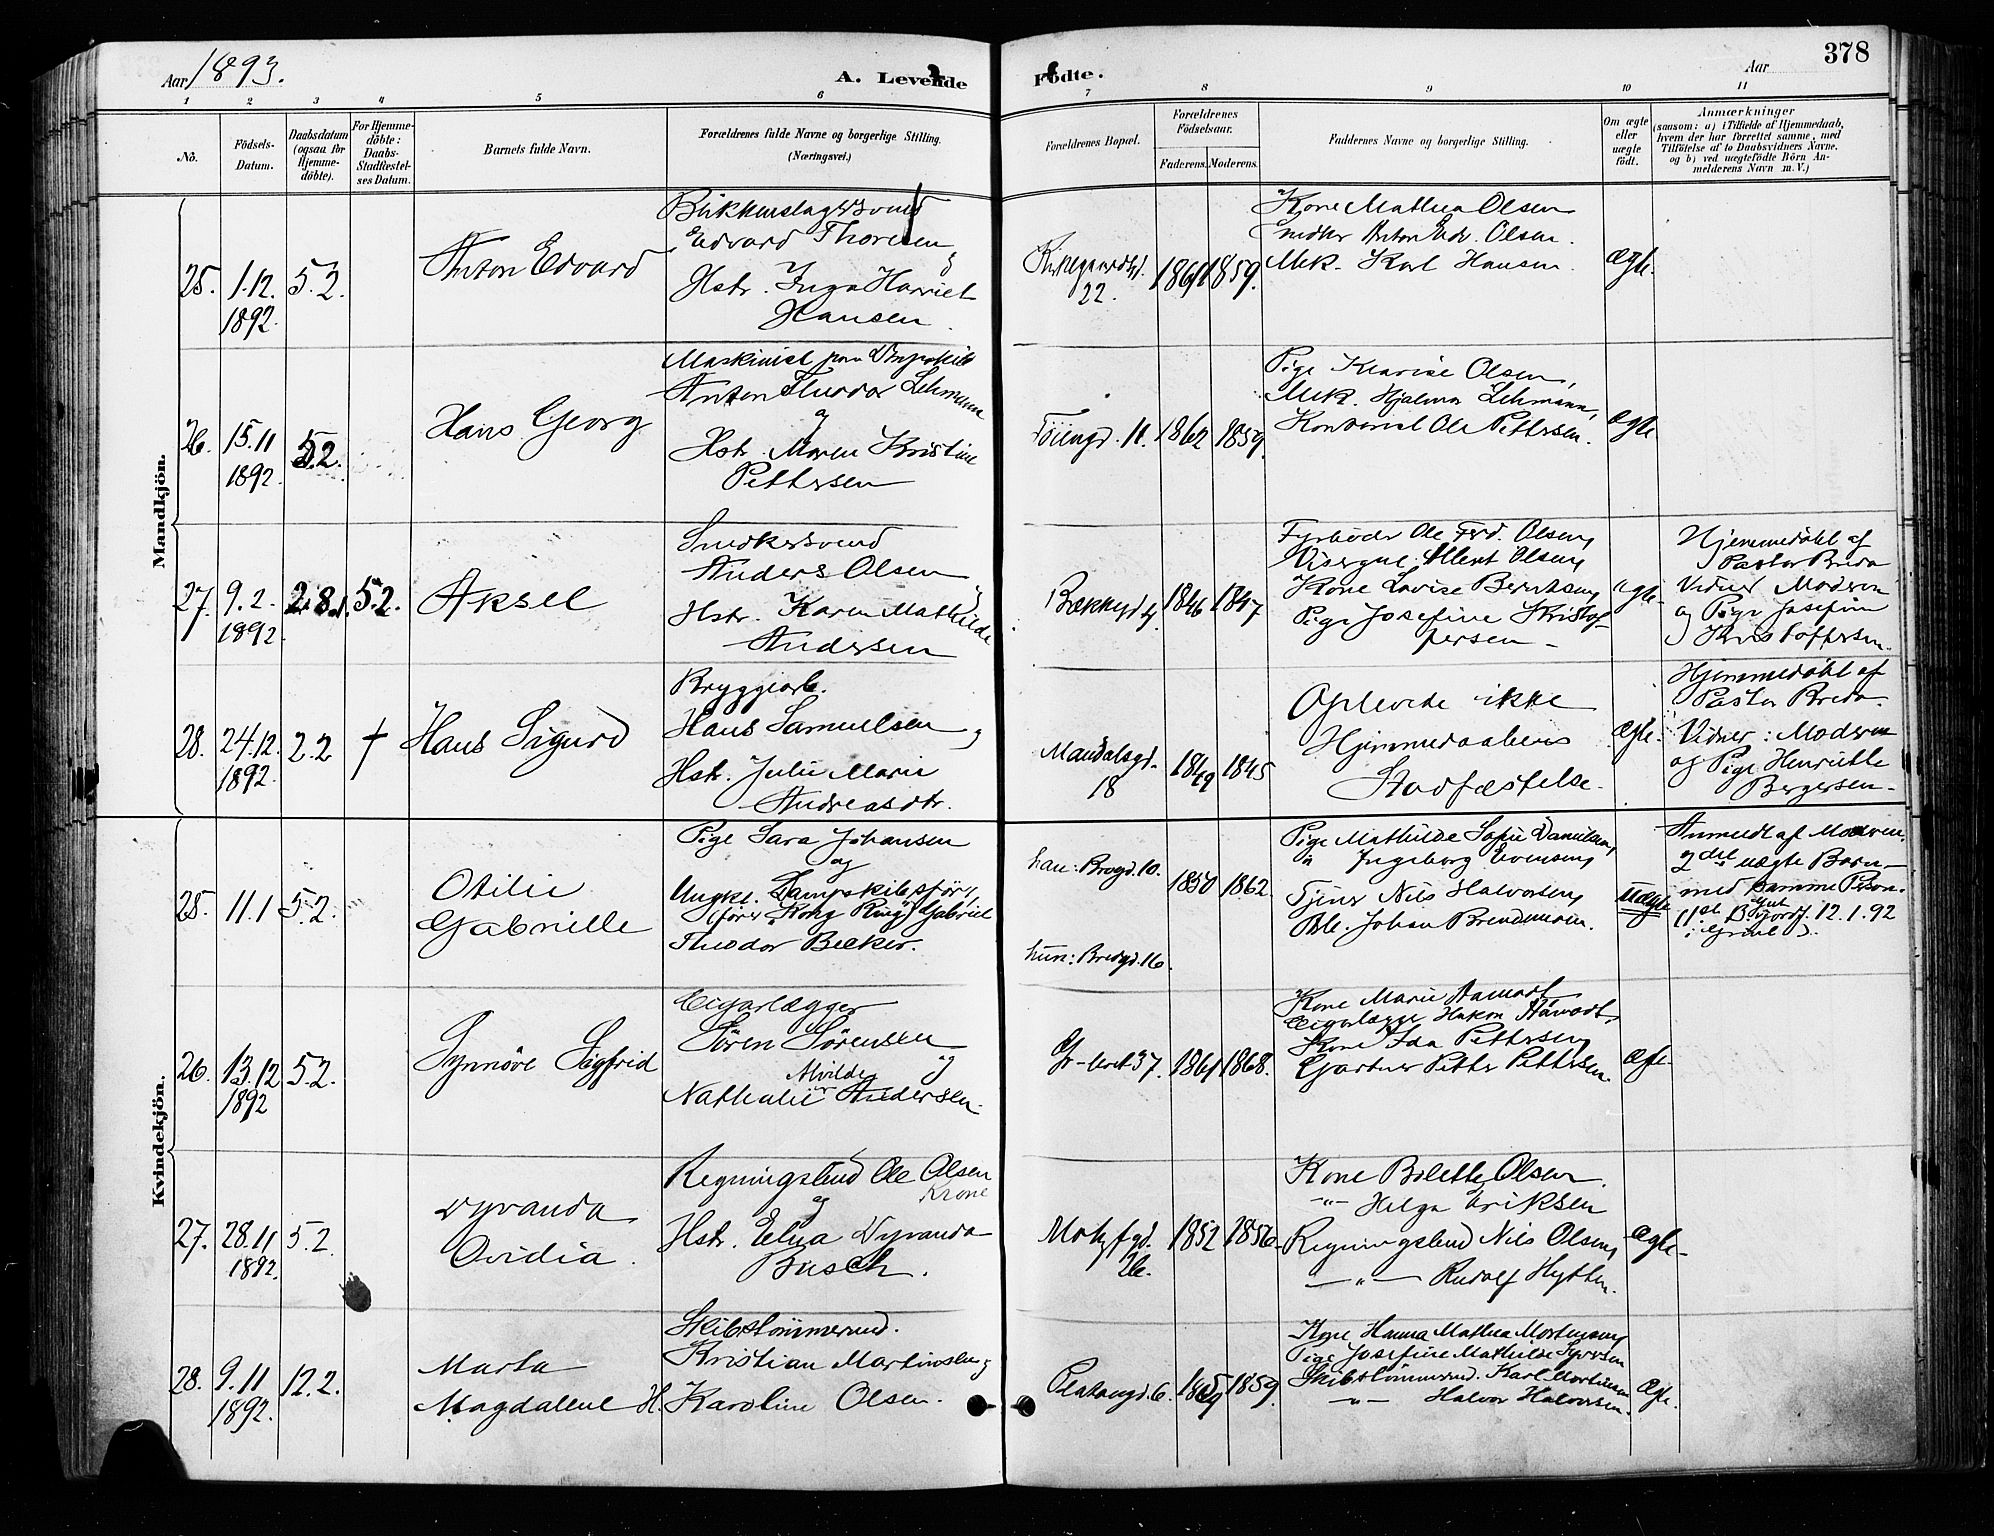 Aar 1893.
A. Levende Fødte.
Aar
378
1 2 3 4 5 6 7 8 9 10 11
No.
Fødsels-Datum.
Daabsdatum (ogsaa for Hjemme-døbte).
For Hjemme-døbte: Daabs-Stadfæstel-ses Datum.
Barnets fulde Navn.
Forældrenes fulde Navne og borgerlige Stilling.
(Næringsvei.)
Forældrenes Bopæl.
Forældrenes Fødselsaar.
Faderens. Moderens.
Faddernes Navne og borgerlige Stilling.
Om ægte eller uægte født.
Anmærkninger
(saasom: a) i Tilfælde af Hjemmedaab,
hvem der har forrettet samme, med
Tilføielse af to Daabsvidners Navne,
og b) ved uægtefødte Børn An-
melderens Navn m. V.)
Mandkjön.
25. 1.12. 1892 5.2.
Anton Edvard
Blikkenslagersvend
Edvard Thoresen
Hstr. Inga Harriet
Hansen.
Kirkegaardsgd. 22.
1861 1859.
Kone Mathea Olsen
Snedker Anton Edv. Olsen.
Mek. Karl Hansen.
ægte.
26. 15.11 1892. 5.2.
Hans Georg
Maskinist paa Dampskib
Anton Theodor Lehmann
og
Hstr. Maren Kristine
Pettersen
Töiengd. 11. 1862 1859.
Pige Klarise Olsen,
Mek. Hjalmar Lehmann,
Kontorist Ole Pettersen.
ægte
27. 9.2. 1892. 2.8. 5.2.
Aksel
Snedkersvend
Anders Olsen
Hstr. Karen Mathilde
Andersen
Bækkegd. 1846 1847
Fyrböder Ole Ferd. Olsen,
Olsen,
Kone Lovise Berntsen,
Pige Josefine Kristof-
fersen -
ægte-
Hjemmedöbt af
Pastor Breda
Vidner Moderen
og Pige Josefine
Kristoffersen.
28. 24.12. 1892. 2.2 †
Hans Sigurd
Bryggiarb.
Hans Samuelsen
Hstr. Julie Marie
Andreasdtr.
Mandalsgd. 18
1849 1845
Oplevede ikke
Hjemmedaabens
Stadfæstelse.
ægte.
Hjemmedöbt af
Pastor Breda.
Vidner: Moderen
og Pige Henriette
Bergersen-
Kvindekjön.
25. 11.1 5.2.
Otilie
Gabrielle
Pige Sara Johansen
og
Ungk. Dampskibsförer
(förer "Kong Ring") Gabriel
Theodor Becker.
han: Brogd. 10.
hun: Bredgd. 16.
1850 1862.
Pige Mathilde Sofie Danielsen,
" Ingeborg Evensen,
Tjener Nils Halvorsen,
Johan Brendmoen.
uægte
Anmeldt af Moderen.
2det uægte Barn
med samme Person.
12.1.92
26. 13.12 1892 5.2.
Synnöve Sigfrid
Cigarlægger
Sören Sörensen
og
Nathalie Alvilde Andersen.
Gr-leret 37. 1861 1868.
Kone Marie
Cigarlægger Hakon
Kone Ida Pettersen
Gartner Petter Pettersen.
ægte.
27. 28.11 1892. 5.2.
Dyvanda
Ovidia.
Regningsbud Ole Olsen
Krone
og
Hstr. Elna Dyvanda
Busch.
Motzfgd. 26.
1852 1856.
Kone Bolette Olsen.
-"- Helga Eriksen
Regningsbud Nils Olsen,
-"- Rudolf Hytten.
ægte-
28. 9.11 1892. 12.2.
Marta
Magdalene H.
Skibstömmermd.
Kristian Martinsen
Karoline Olsen.
Platougd. 6. 1859.
Kone Hanna Mathea Mortensen,
Pige Josefine Mathilde Syversen
Skibstömmermd. Karl Mortensen
-"- Halvor Halvorsen.
ægte.